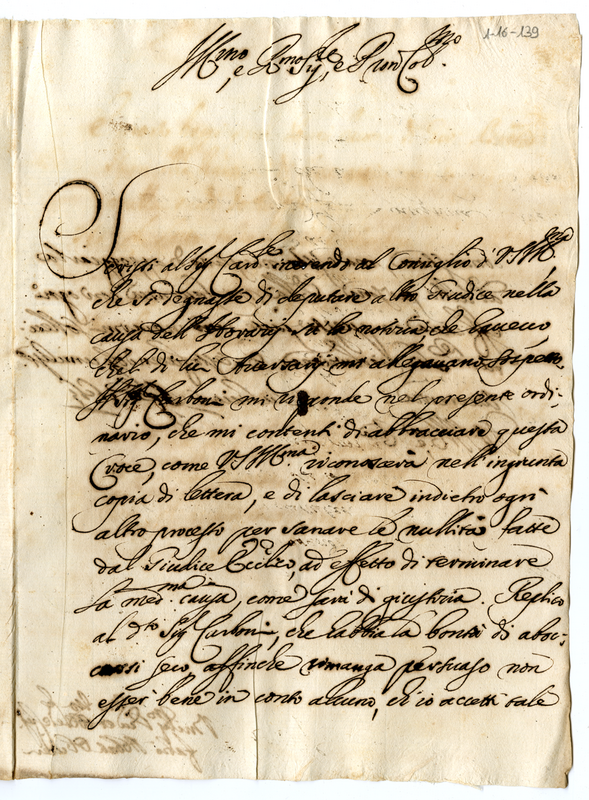 1-16-139
Ill.mo
e R.mo Sig.re, e Pron Col.mo
Scrissi al Sig.r Card.le inerendo al Consiglio di V.S. Ill.ma
che si degnasse di deputare altro Giudice nella
causa dell' su la notizia che havevo
che li di lui Aversarij mi allegavano sospetto.
Il Sig.r Carboni mi risponde nel presente ordi-
nario, che mi contenti di abbracciare questa
Croce, come V.S. Ill.ma riconoscerà nell'ingiunta
copia di lettera, e di lasciare indietro ogni
altro processo per sanare le nullità fatte
dal Giudice Eccl.co, ad effetto di terminare
la med.ma causa, come sarà di giustizia. Replico
al d.to Sig.r Carboni, che habbia la bontà di aboc-
carsi seco affinche rimanga persuaso non
esser bene in conto alcuno, ch'io accetti tale